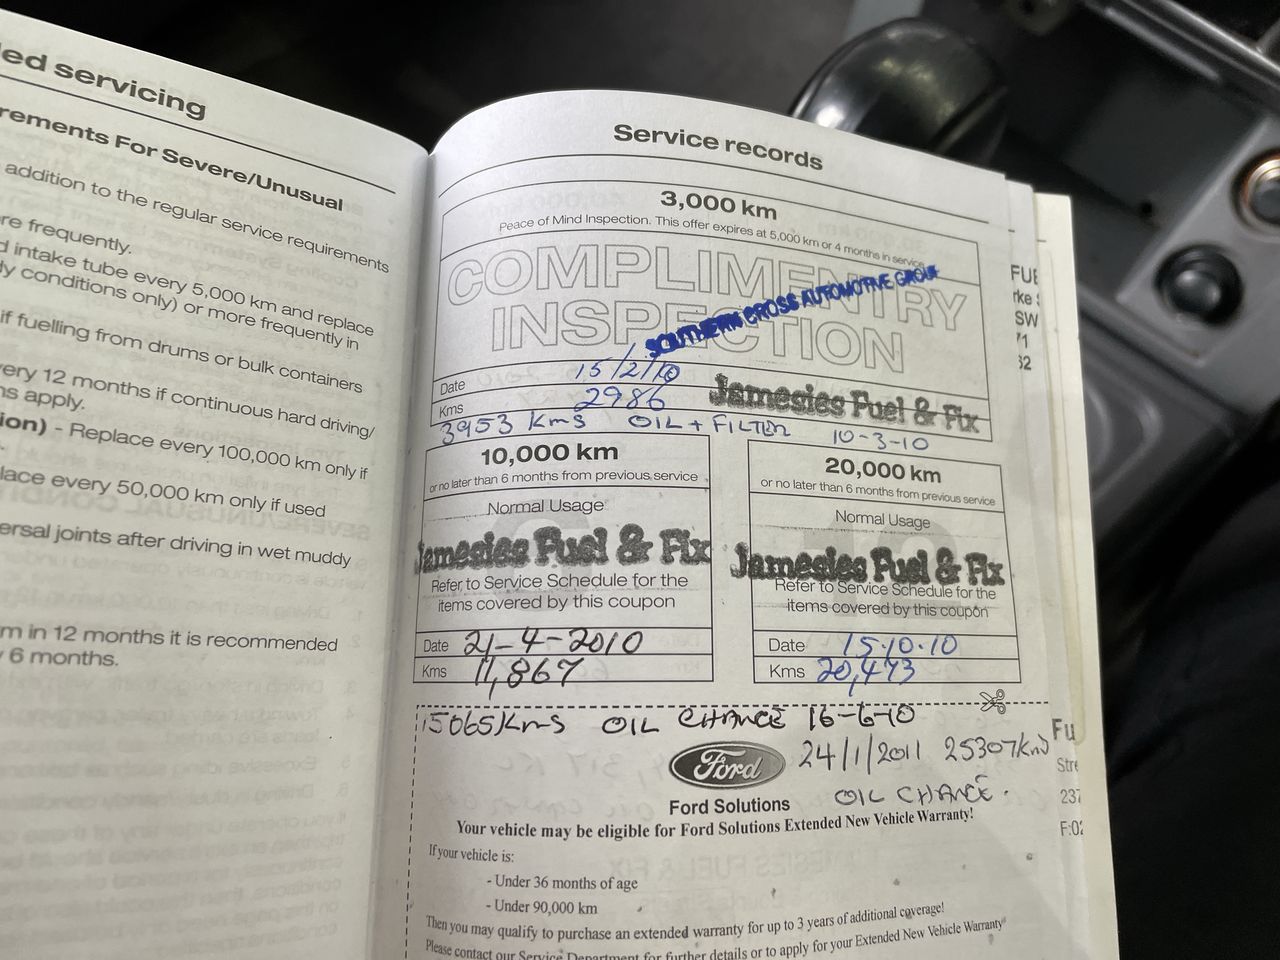 led servicing
rements For Severe/Unusual
addition to the regular service requirements
re frequently.
d intake tube every 5,000 km and replace
y conditions only) or more frequently in
if fuelling from drums or bulk containers
very 12 months if continuous hard driving/
ns apply.
ion) - Replace every 100,000 km only if
lace every 50,000 km only if used
ersal joints after driving in wet muddy
m in 12 months it is recommended
6 months.
Service records
3,000 km
Peace of Mind Inspection. This offer expires at 5,000 km or 4 months in service
COMPLIMENTRY
INSPECTION
SOUTHERN CROSS AUTOMOTIVE GROUP
Date 15/2/10
Kms 2986
Jamesies Fuel & Fix
3953 Kms OIL + FILTER 10-3-10
10,000 km
or no later than 6 months from previous service
Normal Usage
Jamesies Fuel & Fix
Refer to Service Schedule for the
items covered by this coupon
Date 21-4-2010
Kms 11,867
20,000 km
or no later than 6 months from previous service
Normal Usage
Jamesies Fuel & Fix
Refer to Service Schedule for the
items covered by this coupon
Date 15.10.10
Kms 20,473
15065/Kms OIL CHANGE 16-6-10
24/1/2011 25307km
OIL CHANGE.
Ford
Ford Solutions
Your vehicle may be eligible for Ford Solutions Extended New Vehicle Warranty!
If your vehicle is:
- Under 36 months of age
- Under 90,000 km
Then you may qualify to purchase an extended warranty for up to 3 years of additional coverage!
Please contact our Service Department for further details or to apply for your Extended New Vehicle Warranty
FUE
rke
SW
Fu
Stre
237
F:02